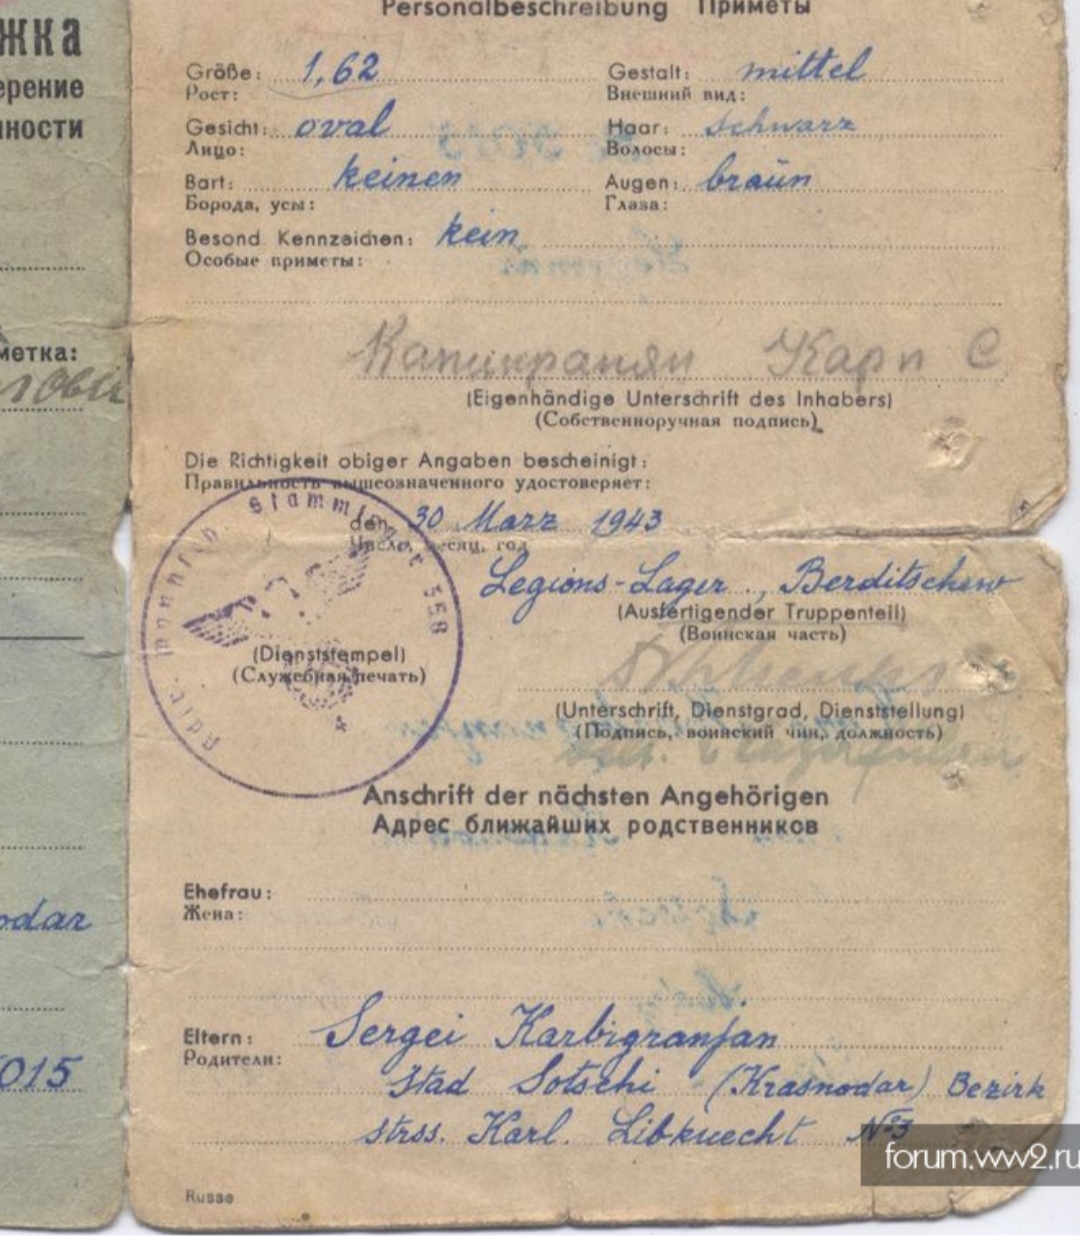 жка
ерение
нности
метка:
odar
5015
Personalbeschreibung Приметы
Größe: 1,62 Gestalt: mittel
Рост: Внешний вид:
Gesicht: oval Haar: schwarz
Лицо: Волосы:
Bart: keinen Augen: braun
Борода, усы: Глаза:
Besond Kennzeichen: kein
Особые приметы:
Карп С
(Eigenhändige Unterschrift des Inhabers)
(Собственноручная подпись)
Die Richtigkeit obiger Angaben bescheinigt:
Правильность вышеозначенного удостоверяет:
den 30 März 1943
Число, месяц, год
Legions-Lager, Berditschew
(Ausfertigender Truppenteil)
(Воинская часть)
Stammlager 358
(Dienststempel)
(Служебная печать)
4
(Unterschrift, Dienstgrad, Dienststellung)
(Подпись, воинский чин, должность)
Anschrift der nächsten Angehörigen
Адрес ближайших родственников
Ehefrau:
Жена:
Eltern: Sergei Karbigranjan
Родители:
Stad Sotschi (Krasnodar) Bezirk
strss. Karl. Libknecht №3
Russe
forum.ww2.ru